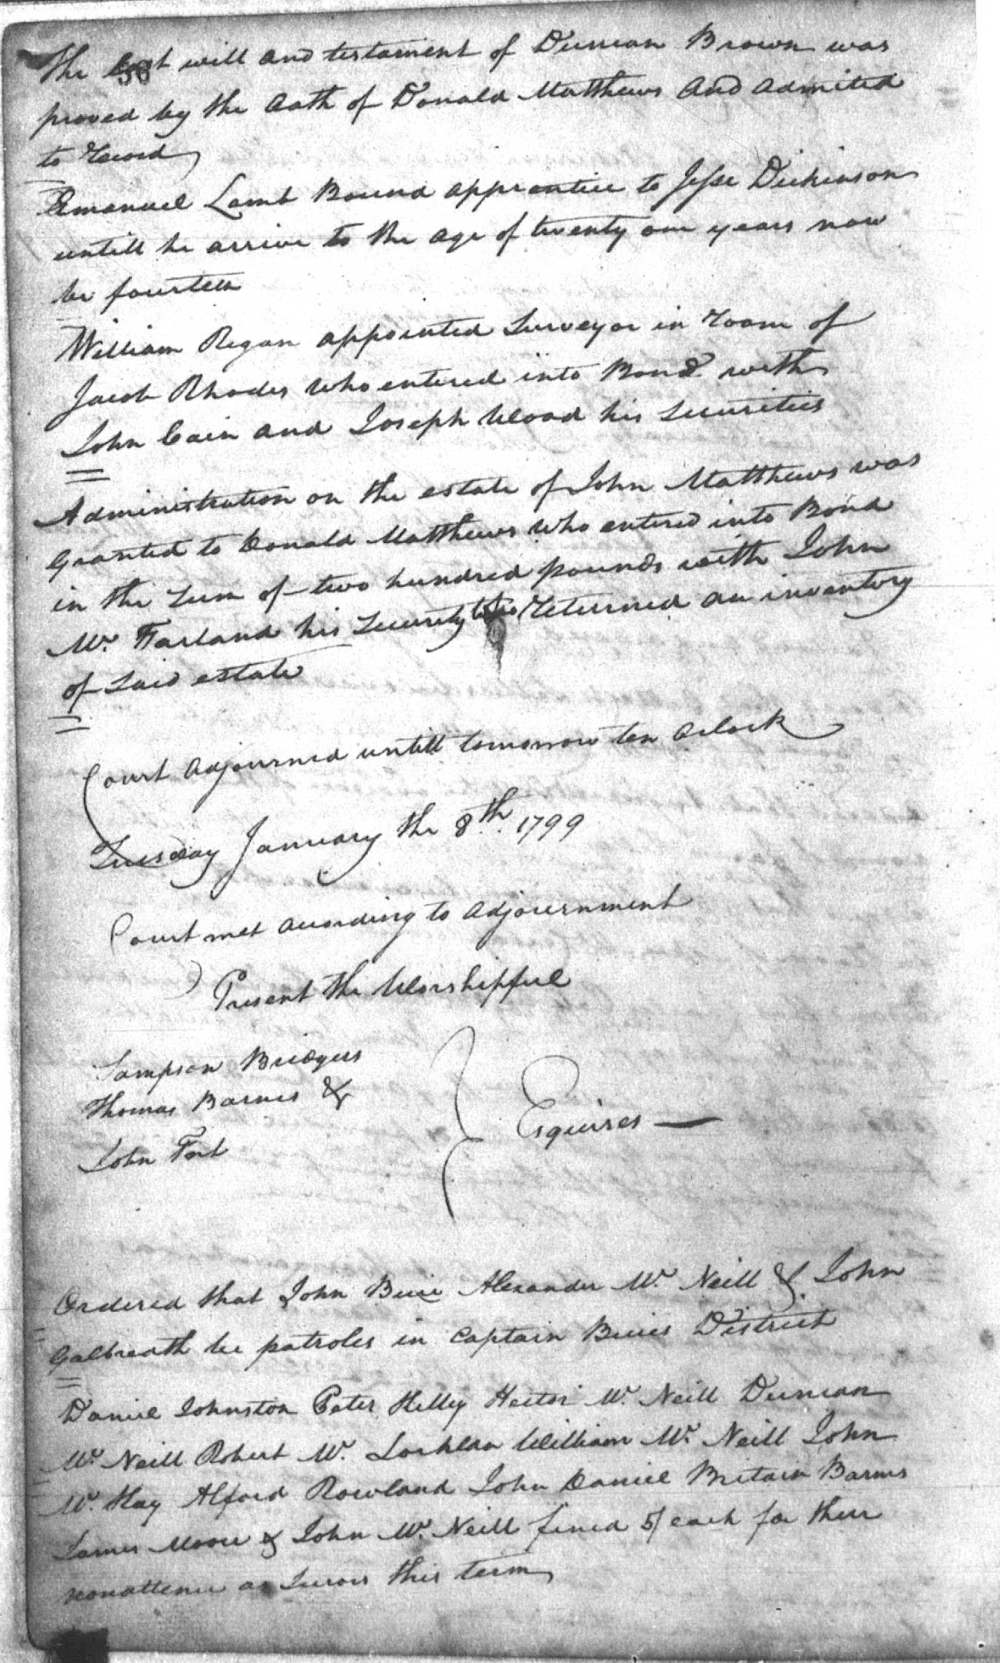 The last will and testament of Duncan Brown was
36
proved by the Oath of Donald Matthews And Admited
to Record
Emanuel Lamb Bound apprentice to Jesse Dickinson
untill he arrive to the age of twenty one years now
be fourteen
William Regan appointed Surveyor in room of
Jacob Rhodes who entered into Bond with
John Cain and Joseph Wood his Securities
Administration on the estate of John Matthews was
Granted to Donald Matthews who entered into Bond
in the Sum of two hundred pounds with John
Mc. Farland his Security who returned an inventory
of Said estate
Court Adjourned untill tomorrow ten Oclock
Tuesday January the 8th. 1799
Court met according to Adjournment
Present the Worshipfull
Sampson Bridgers
Thomas Barnes &
John Fort
Esquires
Ordered that John Buie Alexander Mc. Neill & John
Galbreath be patroles in Captain Buies District
Daniel Johnston Peter Kelley Hector Mc. Neill Duncan
Mc. Neill Robert Mc. Lachlan William Mc. Neill John
Mc. Kay Alford Rowland John Daniel Britain Barnes
James Moore & John Mc. Neill fined 5/ each for their
as Jurors this term